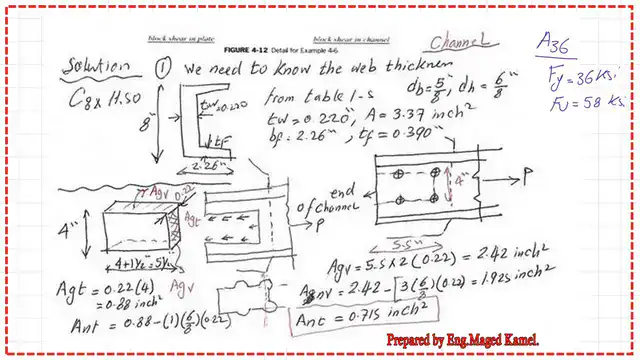 block shear in plate
block shear in channel
FIGURE 4-12 Detail for Example 4-6
Channel
A36
Fy=36 Ksi
Fu=58 Ksi
Solution ① we need to know the web thicknen
C8x 11.50
8"
tw=0.220
tf
2.26"
from table 1-5
db=5/8", dh=6/8"
tw=0.220", A=3.37 inch²
bf=2.26", tf=0.390"
Agv
0.22
4"
Agt
4+1½"=5½"
Agv
P
end
of channel
4"
P
5.5"
Agt=0.22(4)
=0.88 inch²
Ant=0.88-(1)(6/8)(0.22)
Agv=5.5x2(0.22)=2.42 inch²
Anv=2.42-[3(6/8)(0.22)=1.925 inch²
Ant=0.715 inch²
Prepared by Eng.Maged Kamel.